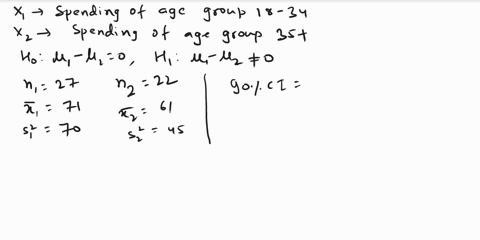 X₁ → Spending of age group 18-34
X₂ → Spending of age group 35+
H₀: μ₁-μ₂=0, H₁: μ₁-μ₂ ≠0
n₁=27 n₂=22 90% CI =
x̄₁ = 71 x̄₂ = 61
s₁² = 70 s₂² = 45